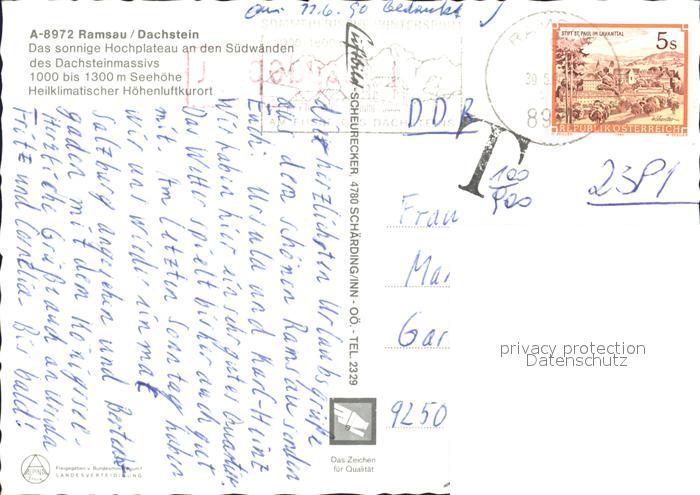 am 11.6.90 bedankt
A-8972 Ramsau / Dachstein
Das sonnige Hochplateau an den Südwänden
des Dachsteinmassivs
1000 bis 1300 m Seehöhe
Heilklimatischer Höhenluftkurort
die herzlichsten Urlaubsgrüße
aus dem schönen Ramsau senden
Euch Ursula und Karl-Heinz
Wir haben hier ein sehr gutes Quartier.
Das Wetter spielt bisher auch gut
mit. Am letzten Sonntag haben
wir uns wieder einmal
Salzburg angesehen und Berchtes-
gaden mit dem Königssee.
Herzliche Grüße auch an Ursula
Fritz und Cornelia. Bis bald!
Luftbild-SCHEURECKER, 4780 SCHÄRDING/INN - OÖ. - TEL. 2329
STIFT ST. PAUL IM LAVANTTAL
5s
REPUBLIK ÖSTERREICH
30.5
89
DDR
T
100
900
2381
Frau
Mar
Gar
9250
privacy protection
Datenschutz
Das Zeichen
für Qualität
ALPINA
Freigegeben v. Bundesministerium f.
LANDESVERTEIDIGUNG